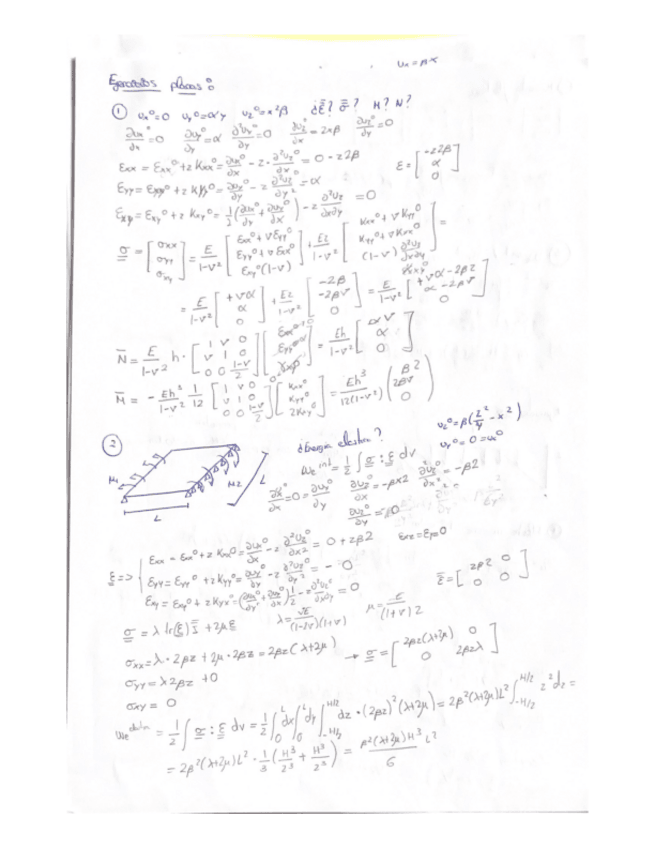 u_x = βx
Ejercicios placas:
① u_x⁰=0 u_y⁰=αy u_z⁰=x²β ¿ε̿? σ̿? M? N?
∂u_x⁰/∂x=0 ∂u_y⁰/∂y=α ∂²u_y⁰/∂y=0 ∂u_z⁰/∂x=2xβ ∂u_z⁰/∂y=0
ε_xx = ε_xx⁰ + z K_xx⁰ = ∂u_x⁰/∂x - z·∂²u_z⁰/∂x² = 0 - z2β
ε = [-z2β α 0]
ε_yy = ε_yy⁰ + z K_yy⁰ = ∂u_y⁰/∂y - z ∂²u_z⁰/∂y² = α
ε_xy = ε_xy⁰ + z K_xy⁰ = 1/2(∂u_x⁰/∂y + ∂u_y⁰/∂x) - z ∂²u_z⁰/∂x∂y = 0
σ = [σ_xx σ_yy σ_xy] = E/(1-ν²) [ε_xx⁰+νε_yy⁰ ε_yy⁰+νε_xx⁰ ε_xy⁰(1-ν)] + Ez/(1-ν²) [K_xx⁰+νK_yy⁰ K_yy⁰+νK_xx⁰ (1-ν) ∂²u_z/∂x∂y] =
= E/(1-ν²) [+να α 0] + Ez/(1-ν²) [-2β -2βν 0] = E/(1-ν²) [+να-2βz α-2βν 0]
N̄ = E/(1-ν²) h · [1 ν 0 ν 1 0 0 0 (1-ν)/2] [ε_xx⁰ ε_yy⁰ γ_xy⁰] = Eh/(1-ν²) [αν α 0]
M̄ = - Eh³/(1-ν²) 1/12 [1 ν 0 ν 1 0 0 0 (1-ν)/2] [K_xx⁰ K_yy⁰ 2K_xy⁰] = Eh³/12(1-ν²) (β2 2βν 0)
② ¿Energía elástica? u_z⁰=β(L²/4 - x²)
u_y⁰=0=u_x⁰
W_e^int = 1/2 ∫ σ : ε dv
M1 M2 L L
∂u_x⁰/∂x=0=∂u_y⁰/∂y ∂u_z⁰/∂x=-βx2 ∂²u_z⁰/∂x²=-β2
∂u_z⁰/∂y=0
ε => { ε_xx = ε_xx⁰ + z K_xx⁰ = ∂u_x⁰/∂x - z ∂²u_z⁰/∂x² = 0 + zβ2
ε_yy = ε_yy⁰ + z K_yy⁰ = ∂u_y⁰/∂y - z ∂²u_z⁰/∂y² = - 0
ε̿ = [zβ2 0 0 0]
ε_xy = ε_xy⁰ + z K_yx⁰ = (∂u_x⁰/∂y + ∂u_y⁰/∂x) 1/2 - z ∂²u_z⁰/∂x∂y = 0
σ = λ tr(ε) I + 2με λ = νE/(1-2ν)(1+ν) μ = E/(1+ν)2
σ_xx = λ·2βz + 2μ·2βz = 2βz(λ+2μ) → σ = [2βz(λ+2μ) 0 0 2βzλ]
σ_yy = λ2βz + 0
σ_xy = 0
W_e = 1/2 ∫ σ : ε dv = 1/2 ∫₀^L dx ∫₀^L dy ∫_{-H/2}^{H/2} dz · (2βz)² (λ+2μ) = 2β²(λ+2μ)L² ∫_{-H/2}^{H/2} z² dz =
= 2β²(λ+2μ)L² · 1/3 (H³/2³ + H³/2³) = β²(λ+2μ)H³L²/6